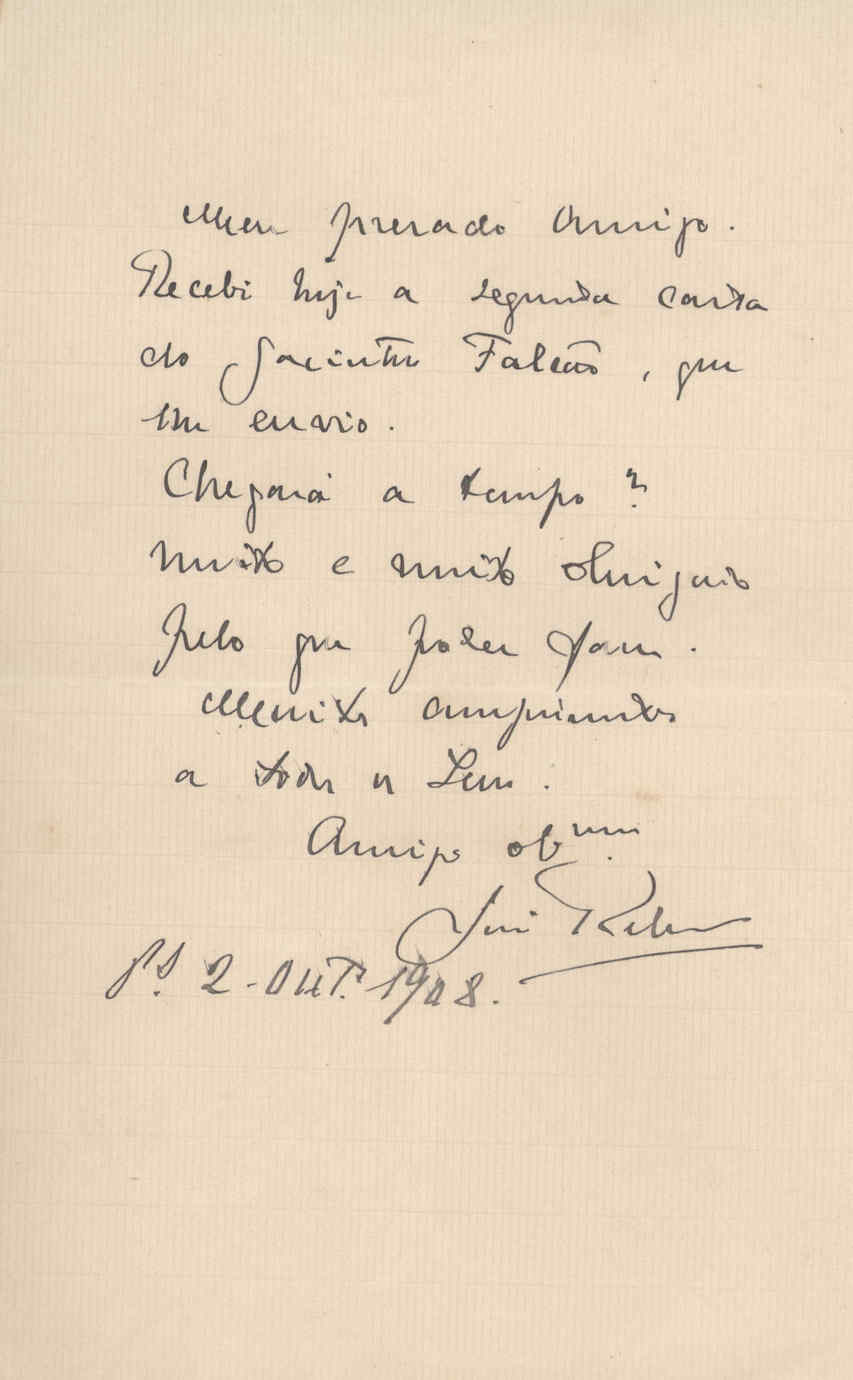 Meu prezado Amigo.
Recebi hoje a segunda carta
do Jacintho Falcão, que
lhe envio.
Chegará a tempo?
Muito e muito obrigado
pelo que poder fazer.
Muitos cumprimentos
a todos os Seus.
Amigo ob.mo
José
2-Out. 1908.